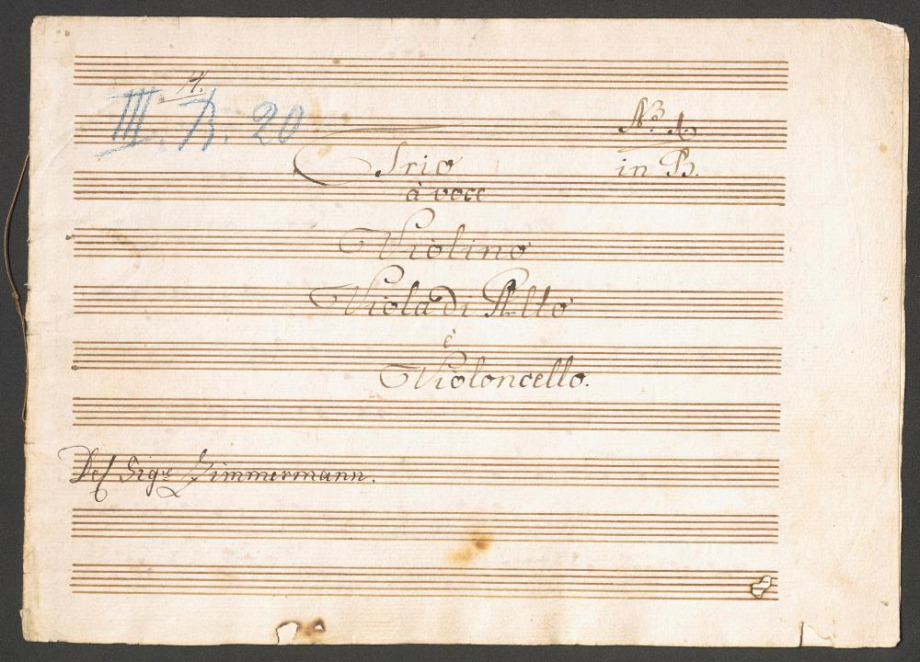 4.
III. B. 20
No. 1.
in B.
Trio
à voce
Violino
Viola di Alto
è
Violoncello.
Del Sigre Zimmermann.